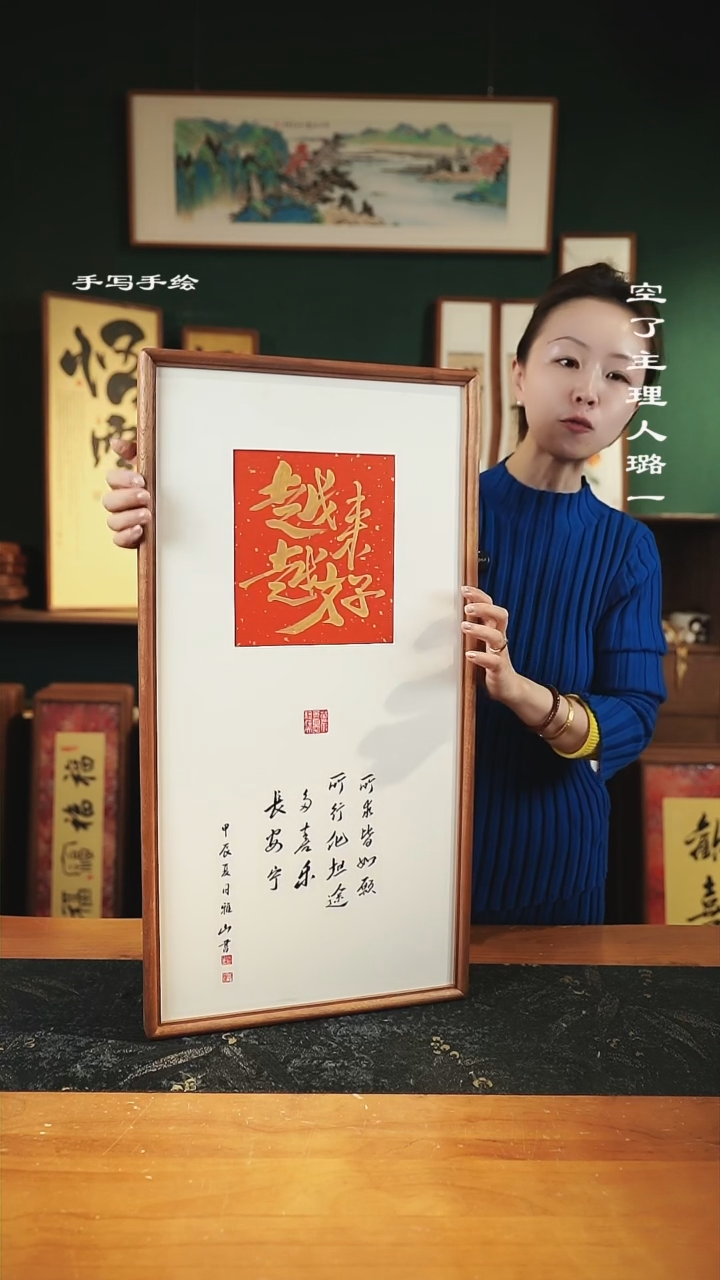 手写手绘
空了主理人璐一
越来
越好
所求皆如愿
所行化坦途
多喜乐
長安宁
甲辰夏月雅山書
福福福
歡喜